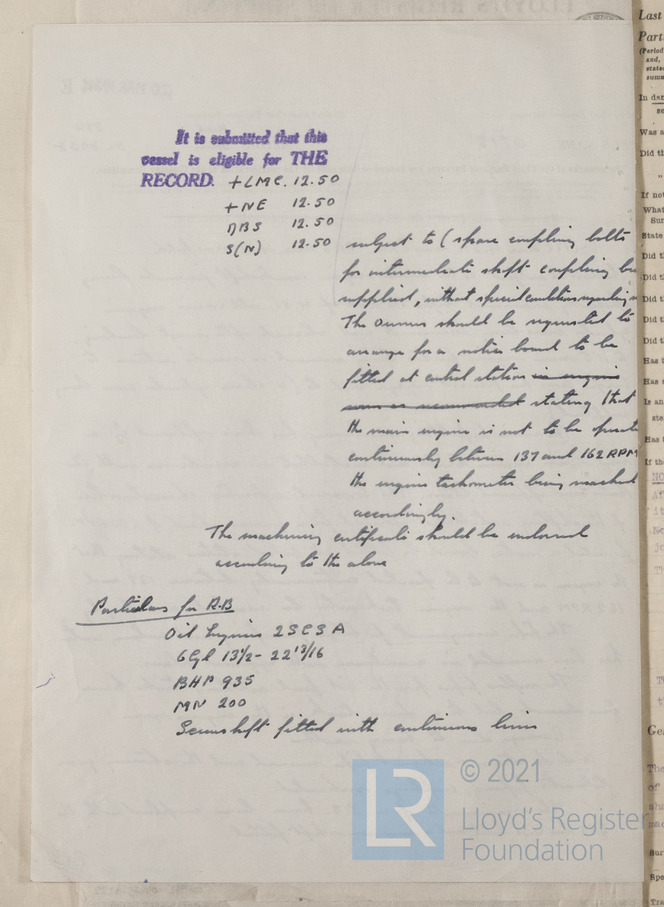 It is submitted that this
vessel is eligible for THE
RECORD. +LMC. 12.50
+NE 12.50
DBS 12.50
S(N) 12.50
subject to (spare coupling bolts
for intermediate shaft coupling be
supplied, without special conditions regarding
The owners should be requested to
arrange for a notice board to be
fitted at control station in engine
room as recommended stating that
the main engine is not to be operated
continuously between 137 and 162 RPM
the engine tachometer being marked
accordingly.
The machinery certificate should be endorsed
according to the above
Particulars for R.B
Oil Engines 2SCSA
6Cyl 13½ - 22 13/16
BHP 935
MN 200
Screwshaft fitted with continuous liner
© 2021
LR
Lloyd's Register
Foundation
Last
Part
(Period
and,
state
summ
In dam
Was a
Did th
"
If not
What
Sur
State
Did th
Did th
Did th
Did th
Did th
Has
Has
Is an
ste
Has t
If the
NO
Ge
The
of
sha
mac
Sur
Spe
Tra